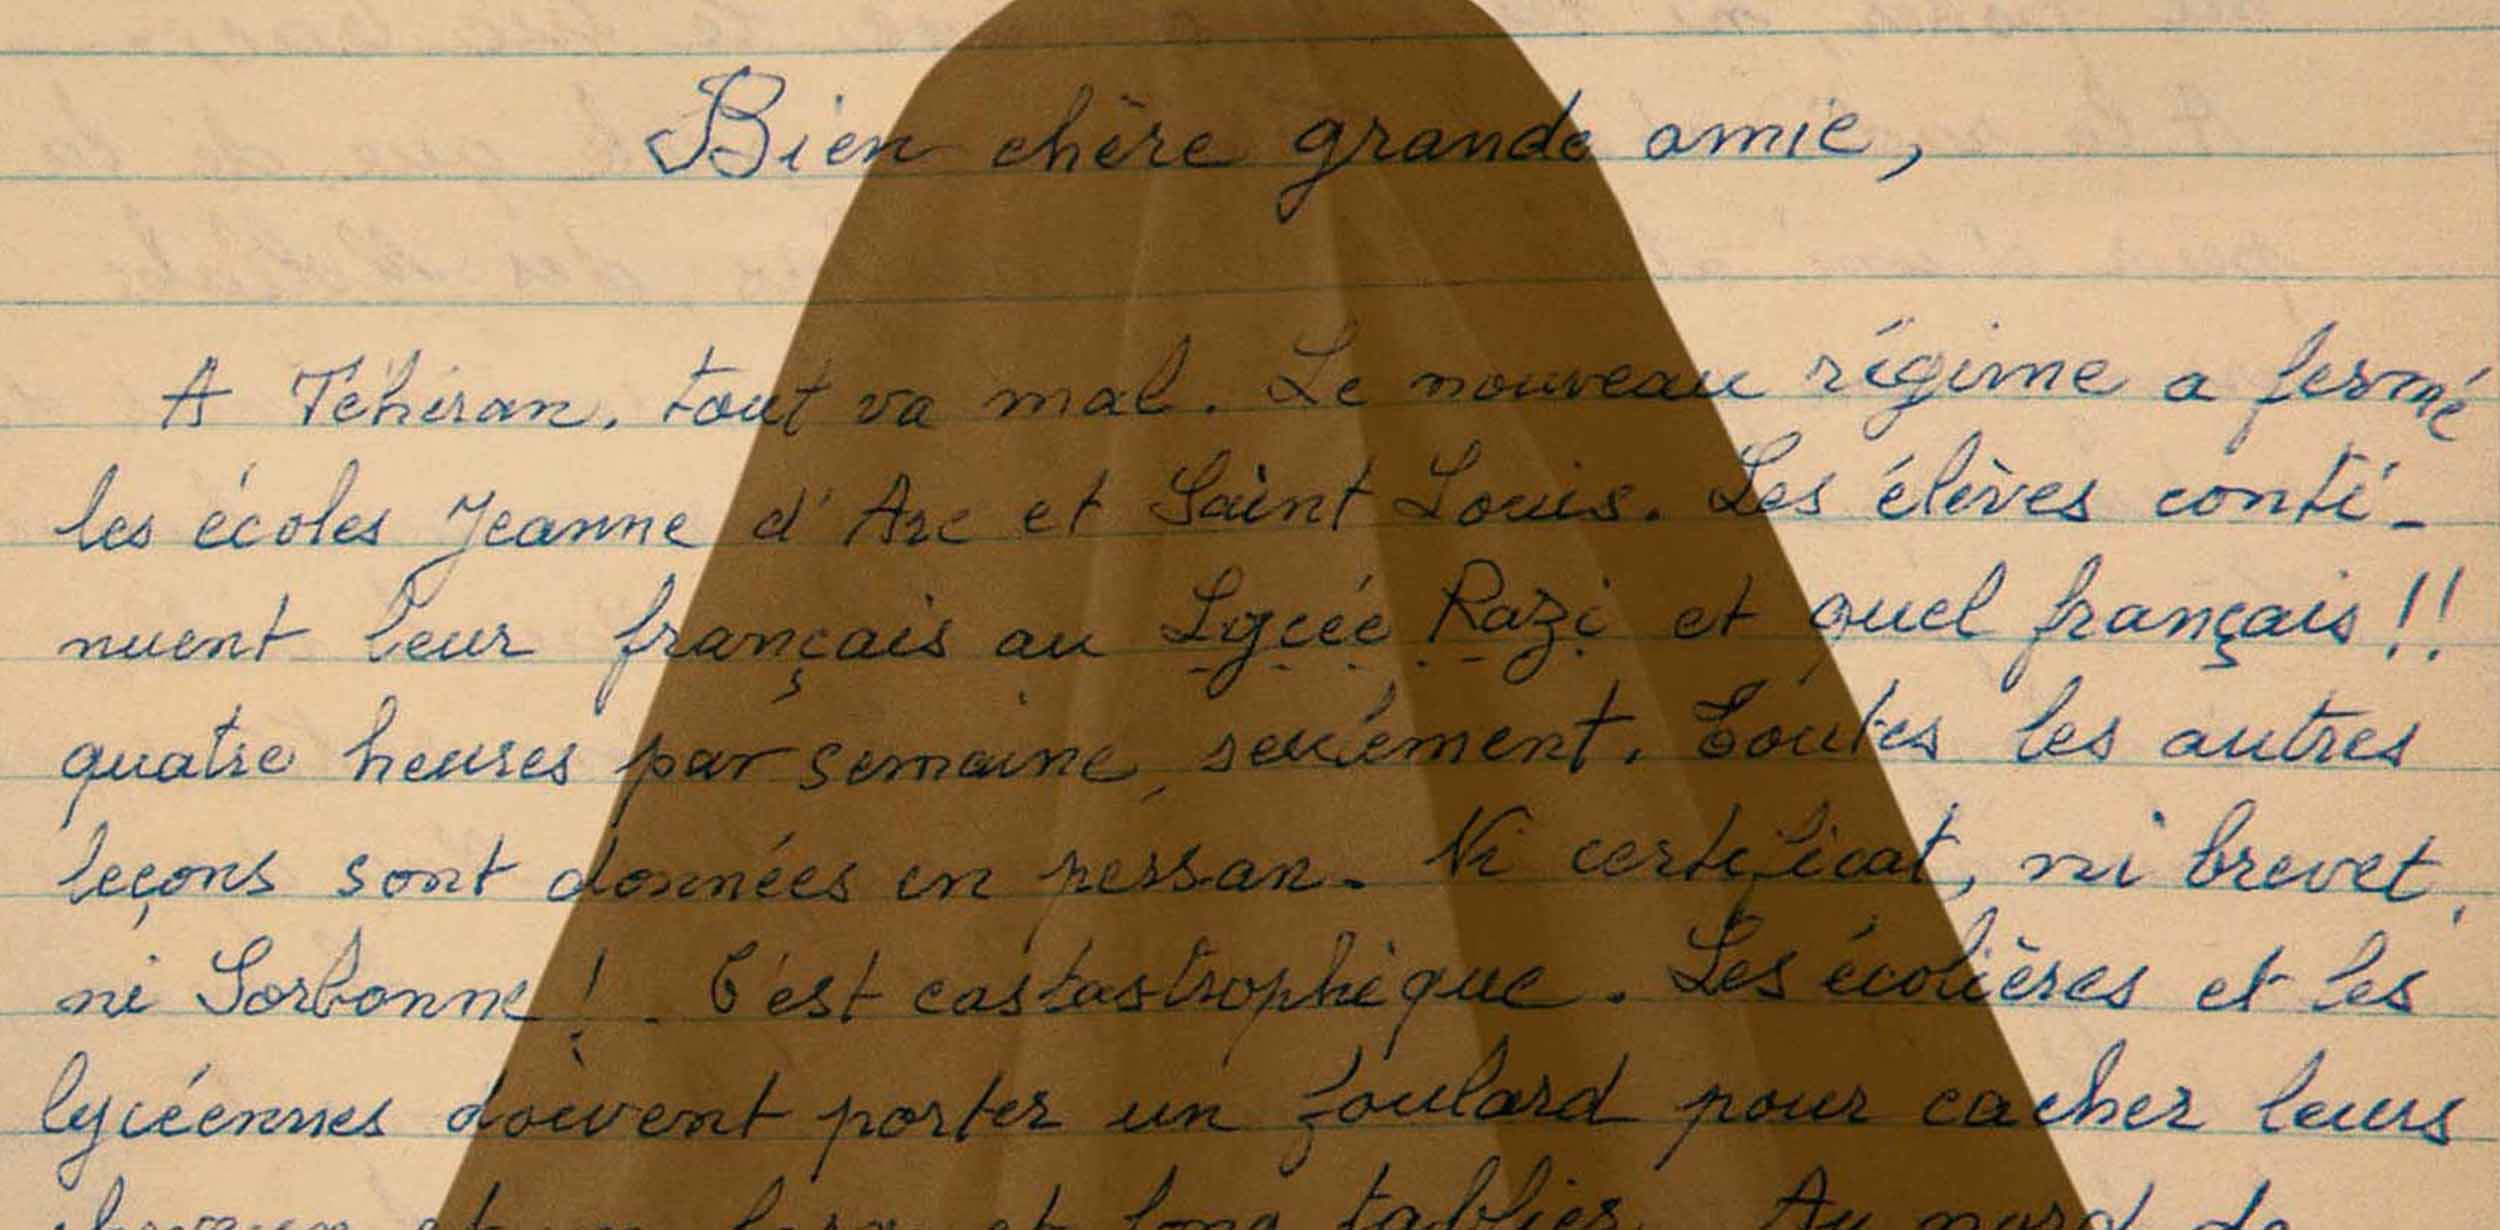 Bien chère grande amie,
A Téhéran, tout va mal. Le nouveau régime a fermé
les écoles Jeanne d'Arc et Saint Louis. Les élèves conti-
nuent leur français au Lycée Razi et quel français!!
quatre heures par semaine, seulement. Toutes les autres
leçons sont données en persan. Ni certificat, ni brevet,
ni Sorbonne! C'est castastrophique. Les écolières et les
lycéennes doivent porter un foulard pour cacher leurs
et long tablier. Au nord de